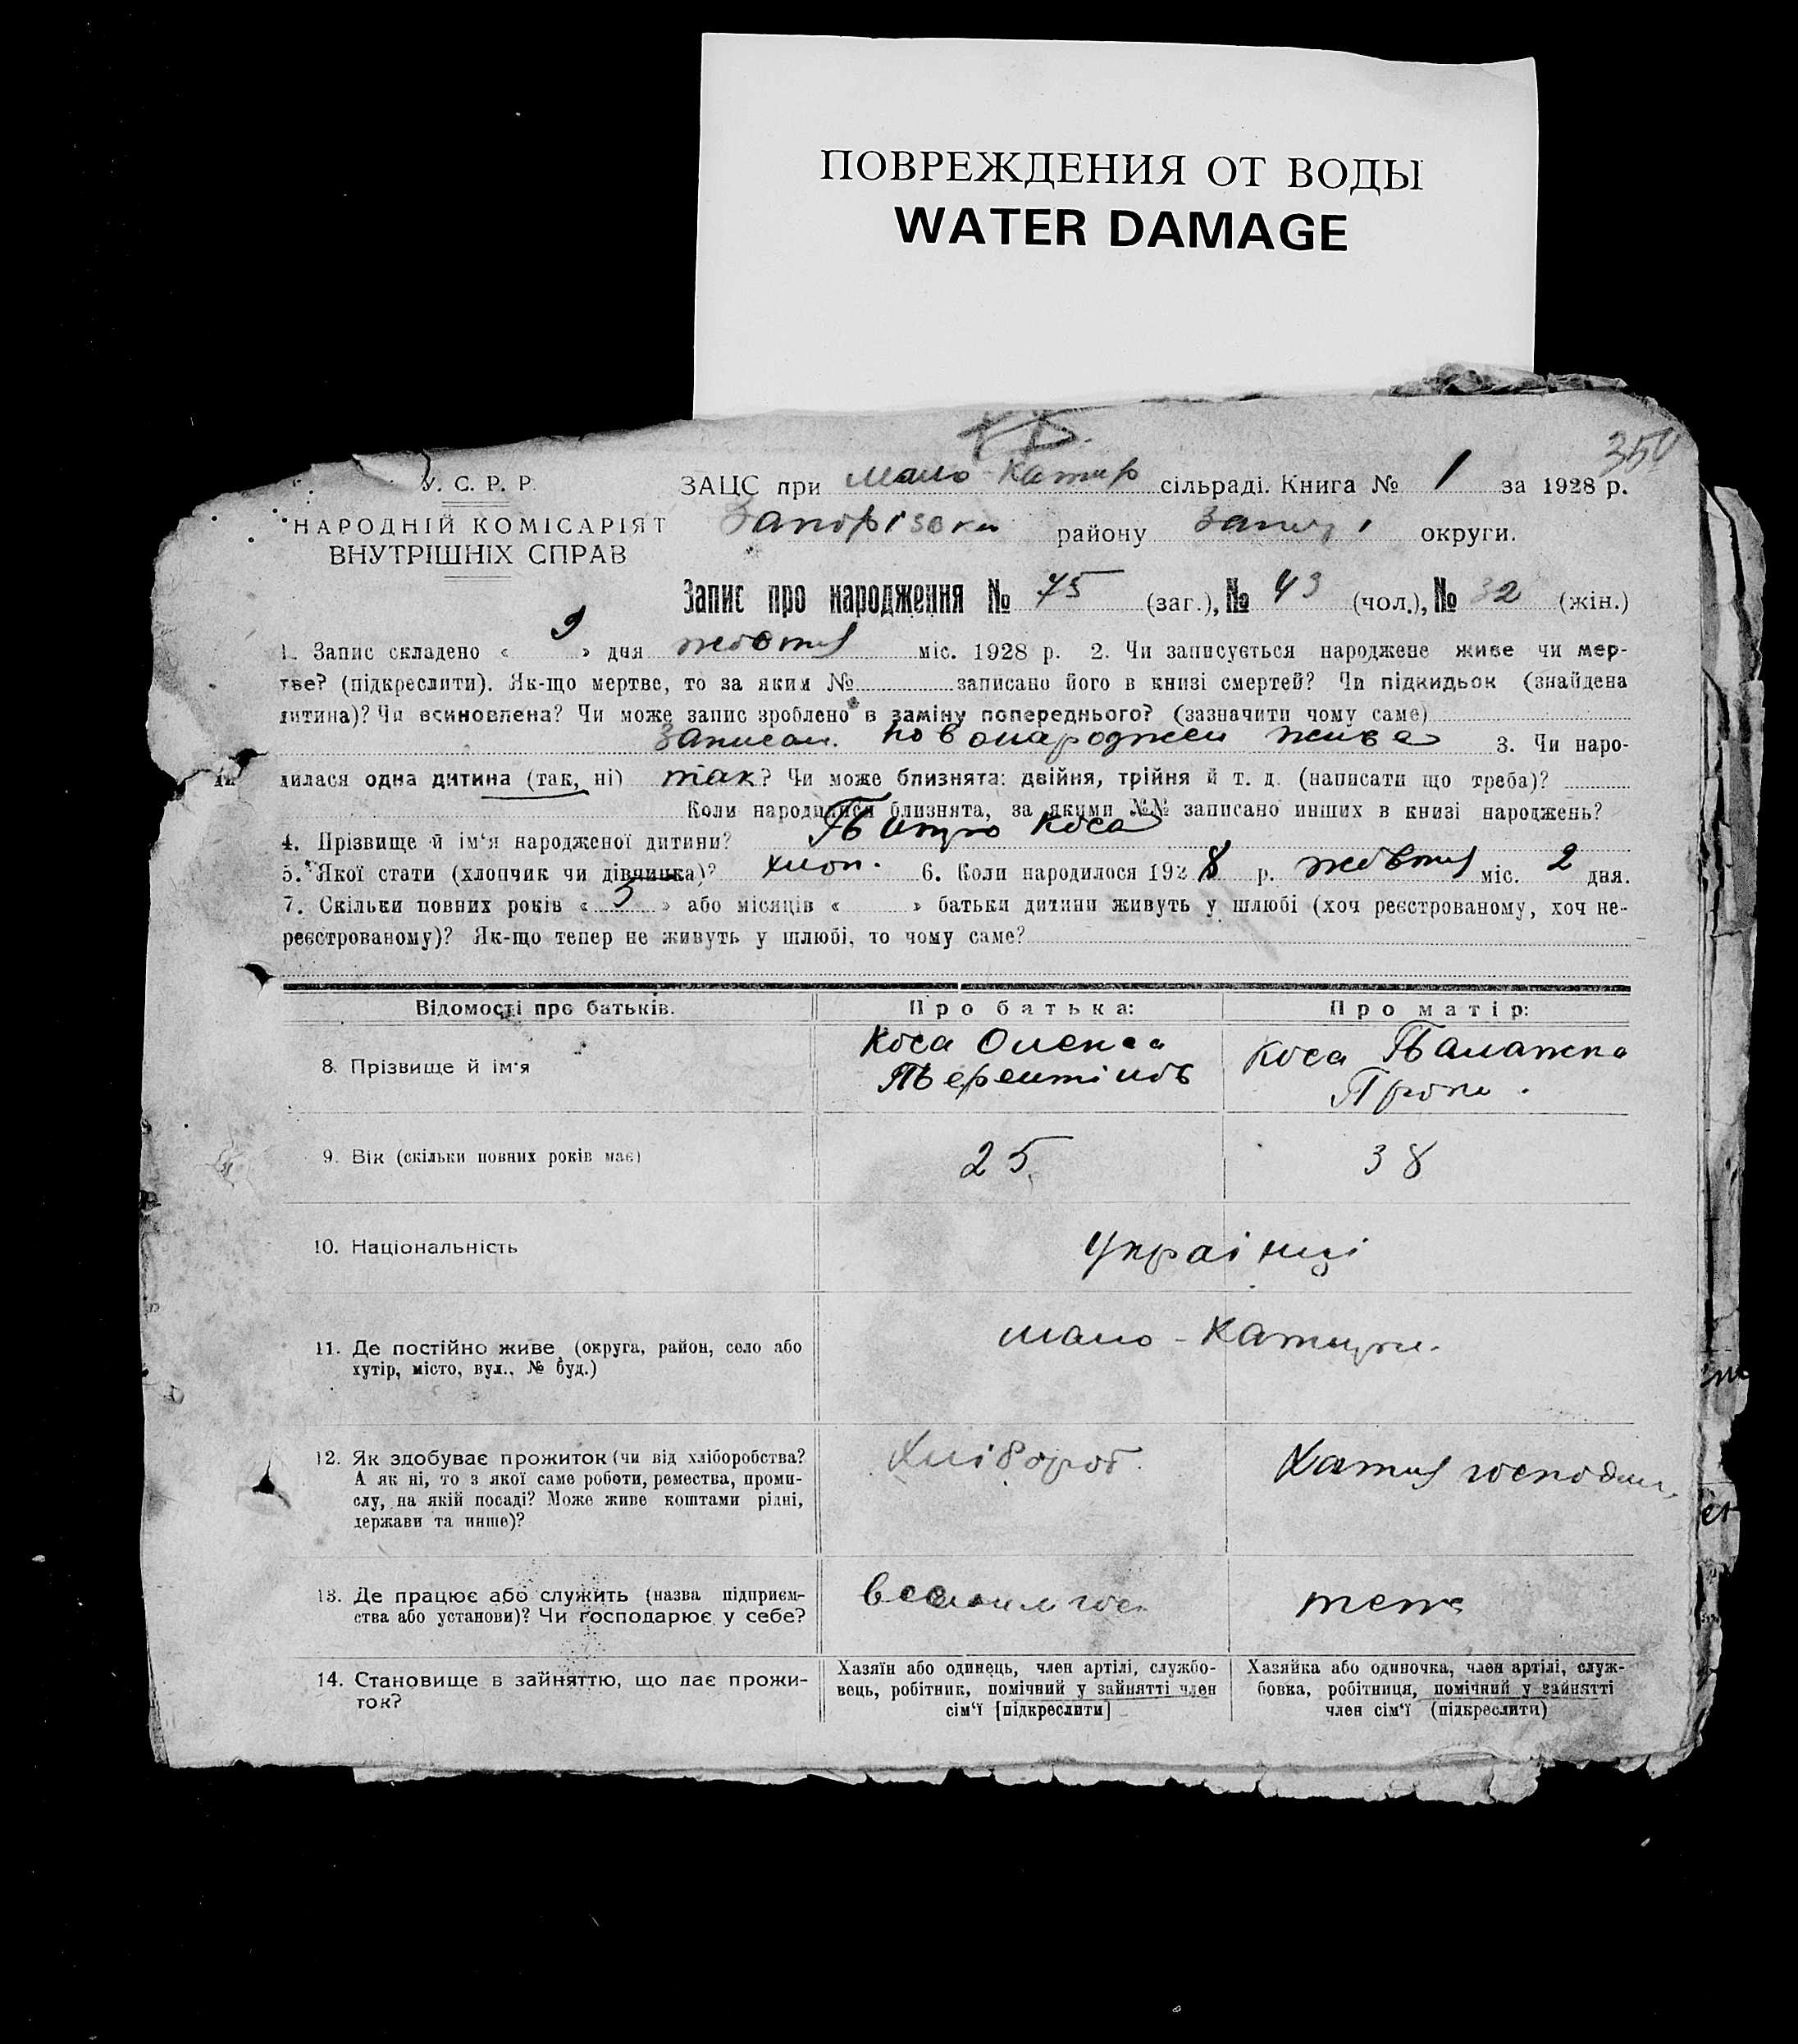 ПОВРЕЖДЕНИЯ ОТ ВОДЫ
WATER DAMAGE
350
У. С. Р. Р.
НАРОДНІЙ КОМІСАРІЯТ
ВНУТРІШНІХ СПРАВ
ЗАЦС при Мало-Катир сільраді. Книга № 1 за 1928 р.
Запорізьки району Запоз округи.
Запис про народження № 75 (заг.), № 43 (чол.), № 32 (жін.)
1. Запис складено « 9 » дня жовтня міс. 1928 р. 2. Чи записується народжене живе чи мер-
тве? (підкреслити). Як-що мертве, то за яким № записано його в книзі смертей? Чи підкидьок (знайдена
дитина)? Чи всиновлена? Чи може запис зроблено в заміну попереднього? (зазначити чому саме)
Записан. новонароджен жива 3. Чи наро-
дилася одна дитина (так, ні) так? Чи може близнята: двійня, трійня й т. д. (написати що треба)?
Коли народилися близнята, за якими №№ записано инших в книзі народжень?
4. Прізвище й ім'я народженої дитини? Коса
5. Якої стати (хлопчик чи дівчинка)? хлоп. 6. Коли народилося 1928 р. жовтня міс. 2 дня.
7. Скільки повних років « 5 » або місяців « » батьки дитини живуть у шлюбі (хоч реєстрованому, хоч не-
реєстрованому)? Як-що тепер не живуть у шлюбі, то чому саме?
Відомості про батьків. Про батька: Про матір:
8. Прізвище й ім'я Коса Олекса Терентійов Коса Паланка Проко.
9. Вік (скільки повних років має) 25 38
10. Національність Українці
11. Де постійно живе (округа, район, село або
хутір, місто, вул., № буд.) Мало-Катери.
12. Як здобуває прожиток (чи від хліборобства?
А як ні, то з якої саме роботи, ремества, проми-
слу, на якій посаді? Може живе коштами рідні,
держави та инше)? Хлібороб. Хатня господин.
13. Де працює або служить (назва підприєм-
ства або установи)? Чи господарює у себе? теж
14. Становище в зайняттю, що дає прожи-
ток?
Хазяїн або одинець, член артілі, службо-
вець, робітник, помічний у зайнятті член
сім'ї [підкреслити]
Хазяйка або одиночка, член артілі, служ-
бовка, робітниця, помічний у зайнятті
член сім'ї (підкреслити)